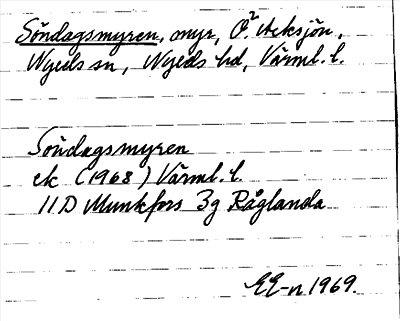 Söndagsmyren, myr, Ö. Acksjön,
Nyeds sn, Nyeds hd, Värml. l.
Söndagsmyren
ek (1968) Värml. l.
11D Munkfors 3g Råglanda
EE-n 1969.